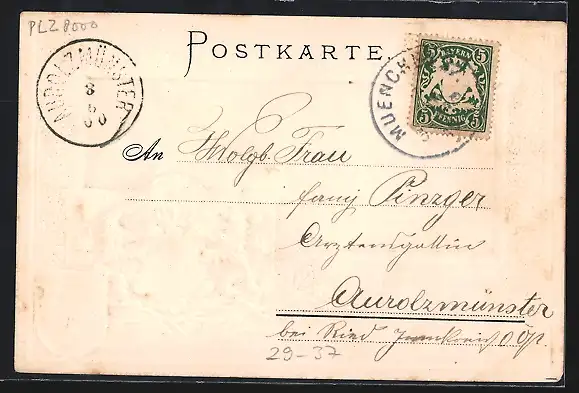 PLZ 8000
POSTKARTE.
AUROLZMÜNSTER
8
5
00
MUENCHEN
5 BAYERN 5
5 PFENNIG 5
An Wolgb. Frau
fany Pinzger
Arztensgattin
Aurolzmünster
bei Ried Innkreis O Öst.
29-37